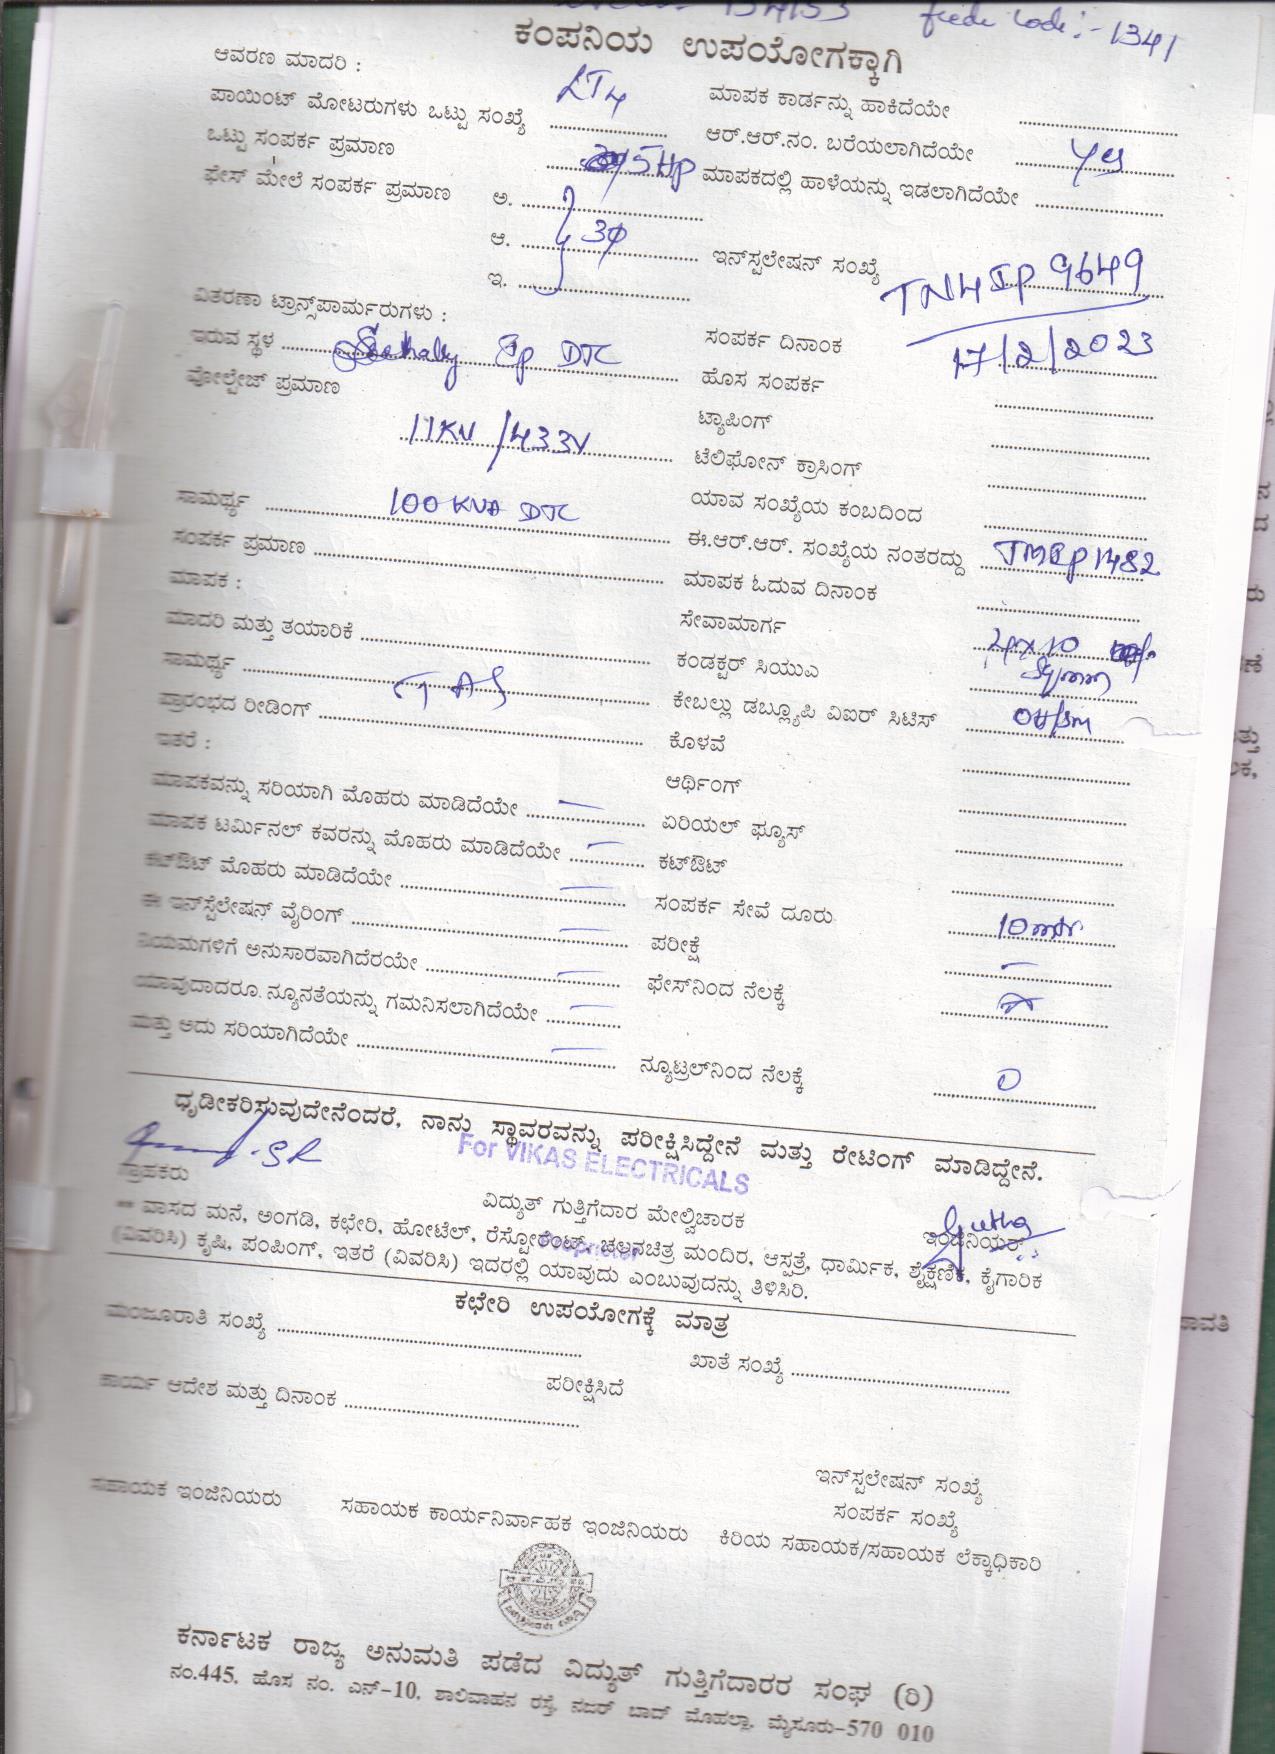 134133 feede code :- 1341
ಕಂಪನಿಯ ಉಪಯೋಗಕ್ಕಾಗಿ
ಆವರಣ ಮಾದರಿ : LT4 ಮಾಪಕ ಕಾರ್ಡನ್ನು ಹಾಕಿದೆಯೇ
ಪಾಯಿಂಟ್ ಮೋಟರುಗಳು ಒಟ್ಟು ಸಂಖ್ಯೆ ಆರ್.ಆರ್.ನಂ. ಬರೆಯಲಾಗಿದೆಯೇ yes
ಒಟ್ಟು ಸಂಪರ್ಕ ಪ್ರಮಾಣ 5HP ಮಾಪಕದಲ್ಲಿ ಹಾಳೆಯನ್ನು ಇಡಲಾಗಿದೆಯೇ
ಫೇಸ್ ಮೇಲೆ ಸಂಪರ್ಕ ಪ್ರಮಾಣ ಅ.
ಆ. 3φ ಇನ್‌ಸ್ಪಲೇಷನ್ ಸಂಖ್ಯೆ TN4IP9649
ಇ.
ವಿತರಣಾ ಟ್ರಾನ್ಸ್‌ಪಾರ್ಮರುಗಳು : ಸಂಪರ್ಕ ದಿನಾಂಕ 17/2/2023
ಇರುವ ಸ್ಥಳ IP DTC ಹೊಸ ಸಂಪರ್ಕ
ವೋಲ್ಟೇಜ್ ಪ್ರಮಾಣ 11KV/433V ಟ್ಯಾಪಿಂಗ್
ಟೆಲಿಫೋನ್ ಕ್ರಾಸಿಂಗ್
ಸಾಮರ್ಥ್ಯ 100KVA DTC ಯಾವ ಸಂಖ್ಯೆಯ ಕಂಬದಿಂದ
ಸಂಪರ್ಕ ಪ್ರಮಾಣ ಈ.ಆರ್.ಆರ್. ಸಂಖ್ಯೆಯ ನಂತರದ್ದು TMIP1482
ಮಾಪಕ : ಮಾಪಕ ಓದುವ ದಿನಾಂಕ
ಮಾದರಿ ಮತ್ತು ತಯಾರಿಕೆ ಸೇವಾಮಾರ್ಗ 4x10
ಸಾಮರ್ಥ್ಯ ಕಂಡಕ್ಟರ್ ಸಿಯುಎ Sq/mm
ಪ್ರಾರಂಭದ ರೀಡಿಂಗ್ ಕೇಬಲ್ಲು ಡಬ್ಲ್ಯೂಪಿ ವಿಐರ್ ಸಿಟಿಸ್
ಇತರೆ : ಕೊಳವೆ
ಆರ್ಥಿಂಗ್
ಮಾಪಕವನ್ನು ಸರಿಯಾಗಿ ಮೊಹರು ಮಾಡಿದೆಯೇ — ಏರಿಯಲ್ ಫ್ಯೂಸ್
ಮಾಪಕ ಟರ್ಮಿನಲ್ ಕವರನ್ನು ಮೊಹರು ಮಾಡಿದೆಯೇ — ಕಟ್‌ಔಟ್
ಕಟ್‌ಔಟ್ ಮೊಹರು ಮಾಡಿದೆಯೇ — ಸಂಪರ್ಕ ಸೇವೆ ದೂರು 10mtr
ಈ ಇನ್‌ಸ್ಟೆಲೇಷನ್ ವೈರಿಂಗ್ — ಪರೀಕ್ಷೆ —
ನಿಯಮಗಳಿಗೆ ಅನುಸಾರವಾಗಿದೆರಯೇ — ಫೇಸ್‌ನಿಂದ ನೆಲಕ್ಕೆ
ಯಾವುದಾದರೂ ನ್ಯೂನತೆಯನ್ನು ಗಮನಿಸಲಾಗಿದೆಯೇ —
ಮತ್ತು ಅದು ಸರಿಯಾಗಿದೆಯೇ — ನ್ಯೂಟ್ರಲ್‌ನಿಂದ ನೆಲಕ್ಕೆ 0
ಧೃಡೀಕರಿಸುವುದೇನೆಂದರೆ, ನಾನು ಸ್ಥಾವರವನ್ನು ಪರೀಕ್ಷಿಸಿದ್ದೇನೆ ಮತ್ತು ರೇಟಿಂಗ್ ಮಾಡಿದ್ದೇನೆ.
For VIKAS ELECTRICALS
ಗ್ರಾಹಕರು ವಿದ್ಯುತ್ ಗುತ್ತಿಗೆದಾರ ಮೇಲ್ವಿಚಾರಕ ಇಂಜಿನಿಯರ್
** ವಾಸದ ಮನೆ, ಅಂಗಡಿ, ಕಛೇರಿ, ಹೋಟೆಲ್, ರೆಸ್ಟೋರೆಂಟ್, ಚಲನಚಿತ್ರ ಮಂದಿರ, ಆಸ್ಪತ್ರೆ, ಧಾರ್ಮಿಕ, ಶೈಕ್ಷಣಿಕ, ಕೈಗಾರಿಕ
(ವಿವರಿಸಿ) ಕೃಷಿ, ಪಂಪಿಂಗ್, ಇತರೆ (ವಿವರಿಸಿ) ಇದರಲ್ಲಿ ಯಾವುದು ಎಂಬುವುದನ್ನು ತಿಳಿಸಿರಿ.
ಕಛೇರಿ ಉಪಯೋಗಕ್ಕೆ ಮಾತ್ರ
ಮಂಜೂರಾತಿ ಸಂಖ್ಯೆ ಖಾತೆ ಸಂಖ್ಯೆ
ಪರೀಕ್ಷಿಸಿದೆ
ಕಾರ್ಯ ಆದೇಶ ಮತ್ತು ದಿನಾಂಕ
ಇನ್‌ಸ್ಪಲೇಷನ್ ಸಂಖ್ಯೆ
ಸಂಪರ್ಕ ಸಂಖ್ಯೆ
ಸಹಾಯಕ ಇಂಜಿನಿಯರು ಸಹಾಯಕ ಕಾರ್ಯನಿರ್ವಾಹಕ ಇಂಜಿನಿಯರು ಕಿರಿಯ ಸಹಾಯಕ/ಸಹಾಯಕ ಲೆಕ್ಕಾಧಿಕಾರಿ
ಕರ್ನಾಟಕ ರಾಜ್ಯ ಅನುಮತಿ ಪಡೆದ ವಿದ್ಯುತ್ ಗುತ್ತಿಗೆದಾರರ ಸಂಘ (ರಿ)
ನಂ.445, ಹೊಸ ನಂ. ಎನ್-10, ಶಾಲಿವಾಹನ ರಸ್ತೆ, ನಜರ್ ಬಾದ್ ಮೊಹಲ್ಲಾ, ಮೈಸೂರು-570 010